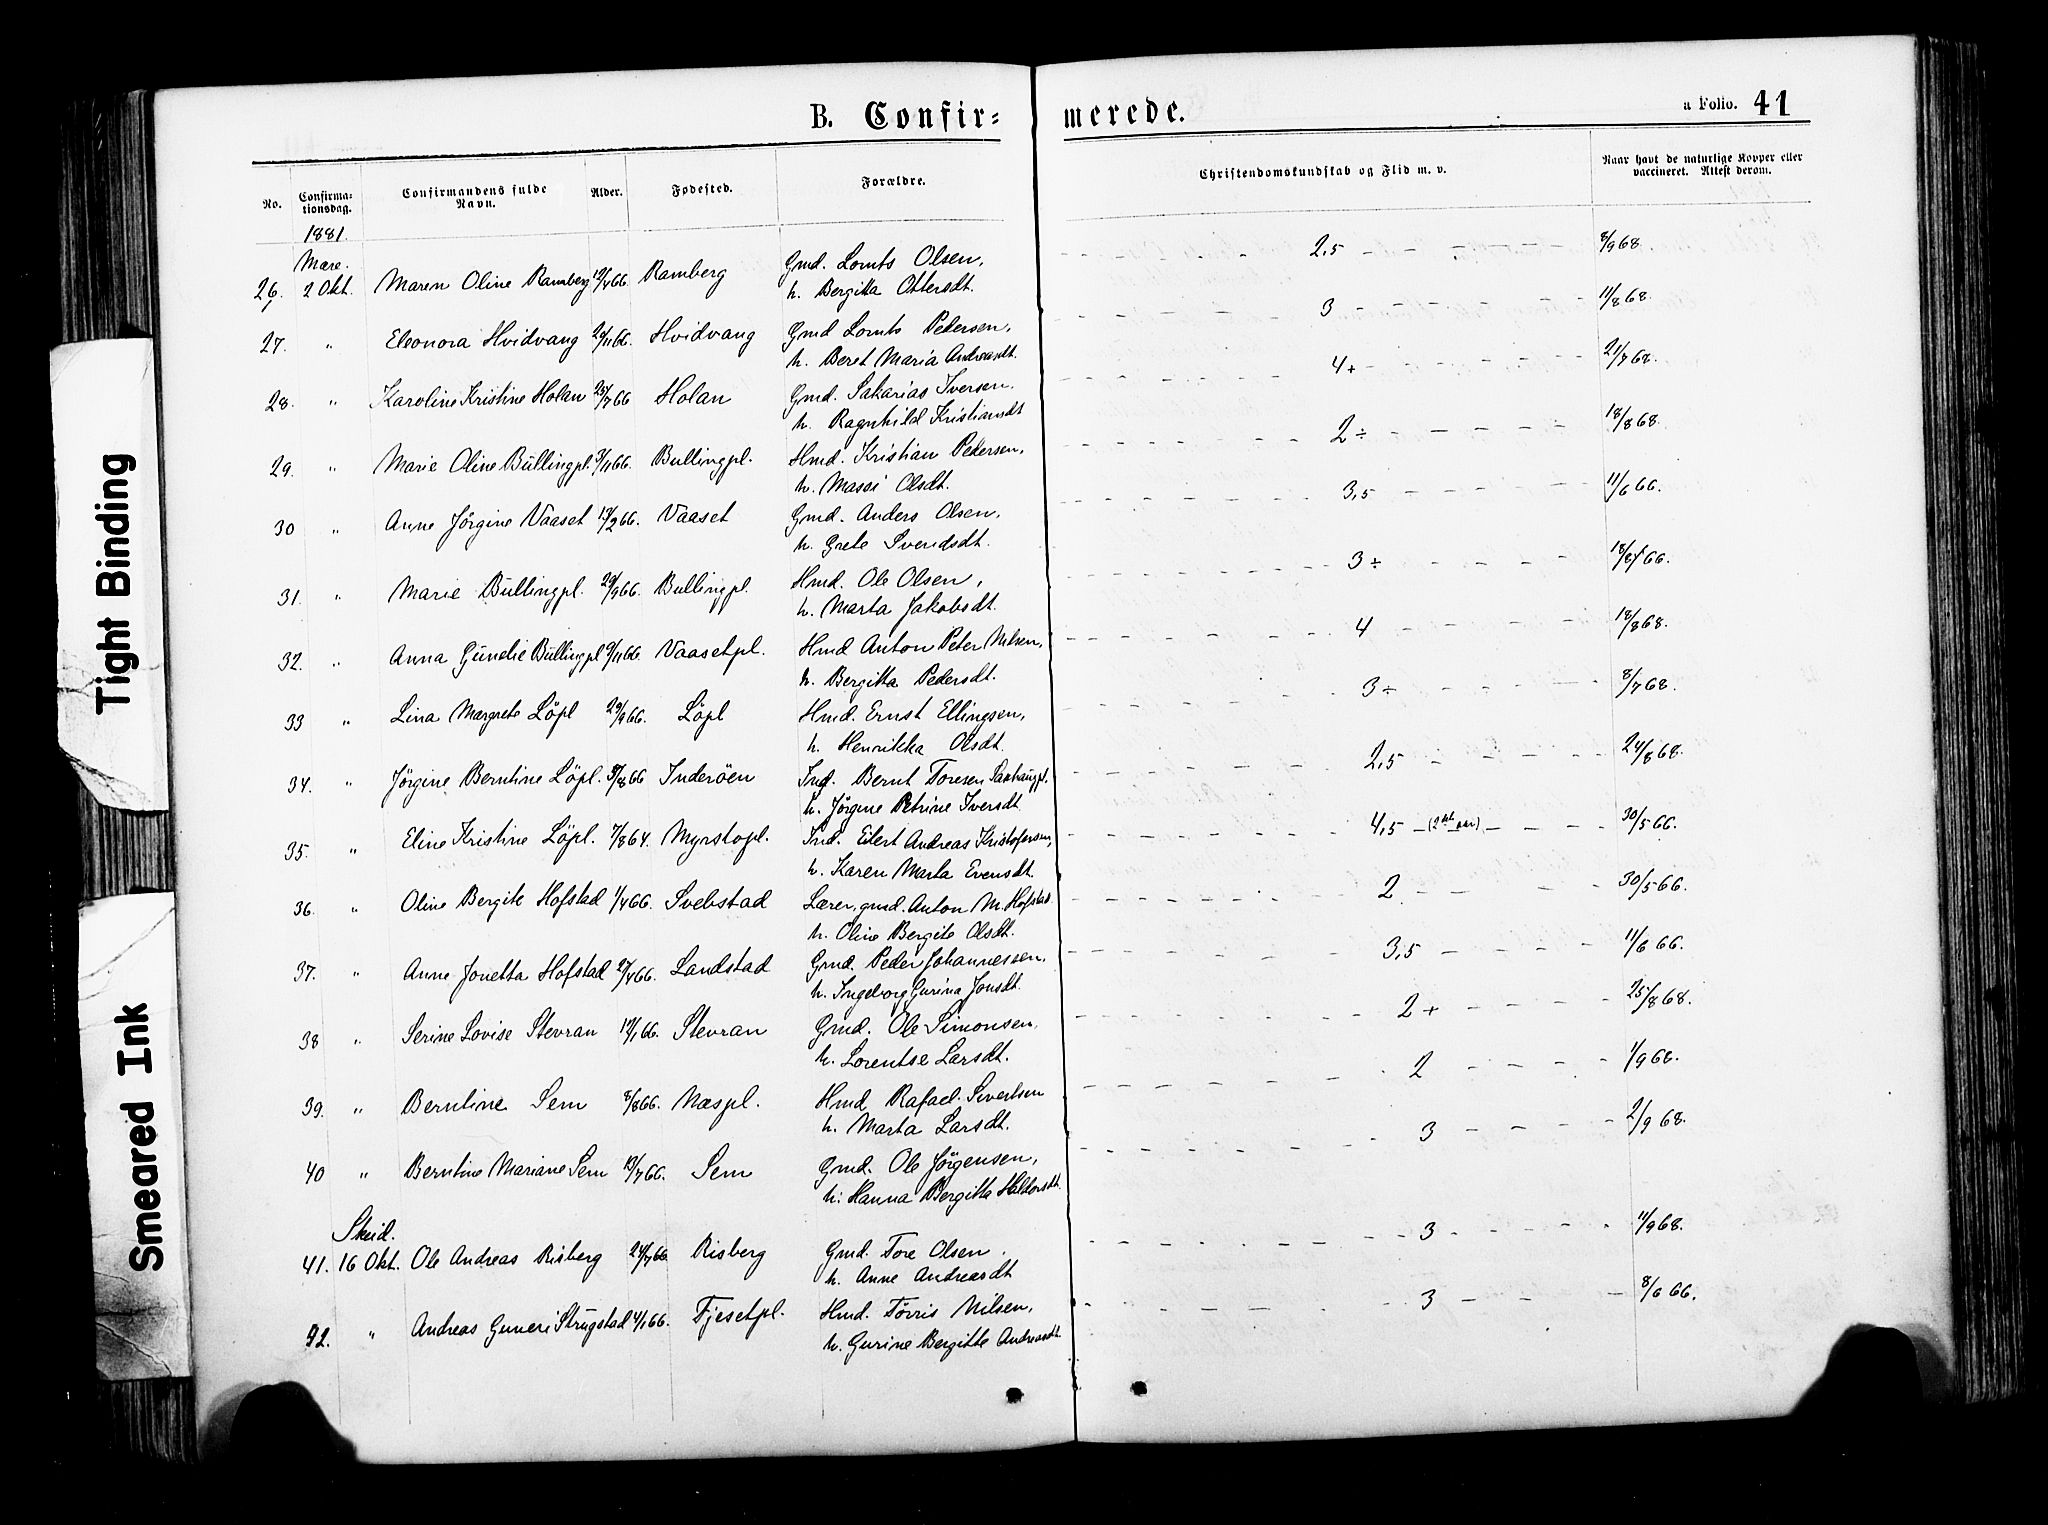 B. Confir=
merede.
a Folio. 41
No. Confirma-tionsdag. Confirmandens fulde Navn. Alder. Fødested. Forældre. Christendomskundskab og Flid m. v. Naar havt de naturlige Kopper eller vaccineret. Attest derom.
1881.
Mære.
26. 2 Okt. Maren Oline Ramberg 12/4 66. Ramberg Gmd. Lornts Olsen, 2,5 8/9 68.
h. Bergitta Ottersdt.
27. " Eleonora Hvidvang 24/11 66. Hvidvang Gmd Lornts Pedersen, 3 11/8 68.
h. Beret Maria Andreasdt.
28. " Karoline Kristine Holan 25/7 66 Holan Gmd. Sakarias Iversen, 4+ 21/7 68.
h. Ragnhild Kristiansdt
29. " Marie Oline Bullingpl. 3/11 66. Bullingpl. Hmd. Kristian Pedersen, 2÷ 18/8 68.
h. Masoi Olsdt.
30 " Anne Jörgine Vaaset 17/2 66. Vaaset Gmd. Anders Olsen, 3,5 11/6 66.
h. Grete Svendsdt.
31. " Marie Bullingpl. 29/9 66. Bullingpl. Hmd. Ole Olsen, 3÷ 18/8 66.
h. Marta Jakobsdt.
32. " Anna Gunelie Bullingpl 9/11 66. Vaasetpl. Hmd Anton Peter Nilsen, 4 18/8 68.
h. Bergitta Pedersdt.
33 " Lina Margrete Löpl 29/9 66. Löpl Hmd. Ernst Ellingsen, 3÷ 8/7 68.
h. Henrikka Olsdt.
34. " Jörgine Berntine Löpl. 31/8 66 Inderöen Ind. Bernt Toresen Saxhaugpl. 2,5 24/8 68.
h. Jörgine Petrine Iversdt
35. " Eline Kristine Löpl. 7/8 64. Myrstopl. Ind. Eilert Andreas Kristofersen, 4,5 (2det aar) 30/5 66.
h. Karen Marta Evensdt.
36. " Oline Bergite Hofstad 1/4 66. Svebstad Lærer, gmd. Anton M. Hofstad 2 30/5 66.
h. Oline Bergite Olsdt.
37. " Anne Jonetta Hofstad 27/4 66. Landstad Gmd. Peder Johannessen, 3,5 11/6 66.
h. Ingeborg Gurina Jonsdt.
38 " Serine Lovise Stevran 12/1 66. Stevran Gmd. Ole Simonsen, 2+ 25/8 68.
h. Lorentse Larsdt.
39. " Berntine Sem 8/8 66. Næspl. Hmd Rafael Sivertsen 2 1/9 68.
h. Marta Larsdt.
40 " Berntine Mariane Sem 19/7 66. Sem Gmd. Ole Jörgensen, 3 2/9 68.
h. Hanna Bergitta Haldorsdt.
Skeid.
41. 16 Okt. Ole Andreas Risberg 24/7 66 Risberg Gmd. Tore Olsen 3 11/9 68.
h. Anne Andreasdt
42. " Andreas Guneri Strugstad 4/1 66. Fjesetpl. Hmd. Törris Nilsen, 3 8/6 66.
h. Gurine Bergitte Andreasdt
Tight Binding
Smeared Ink